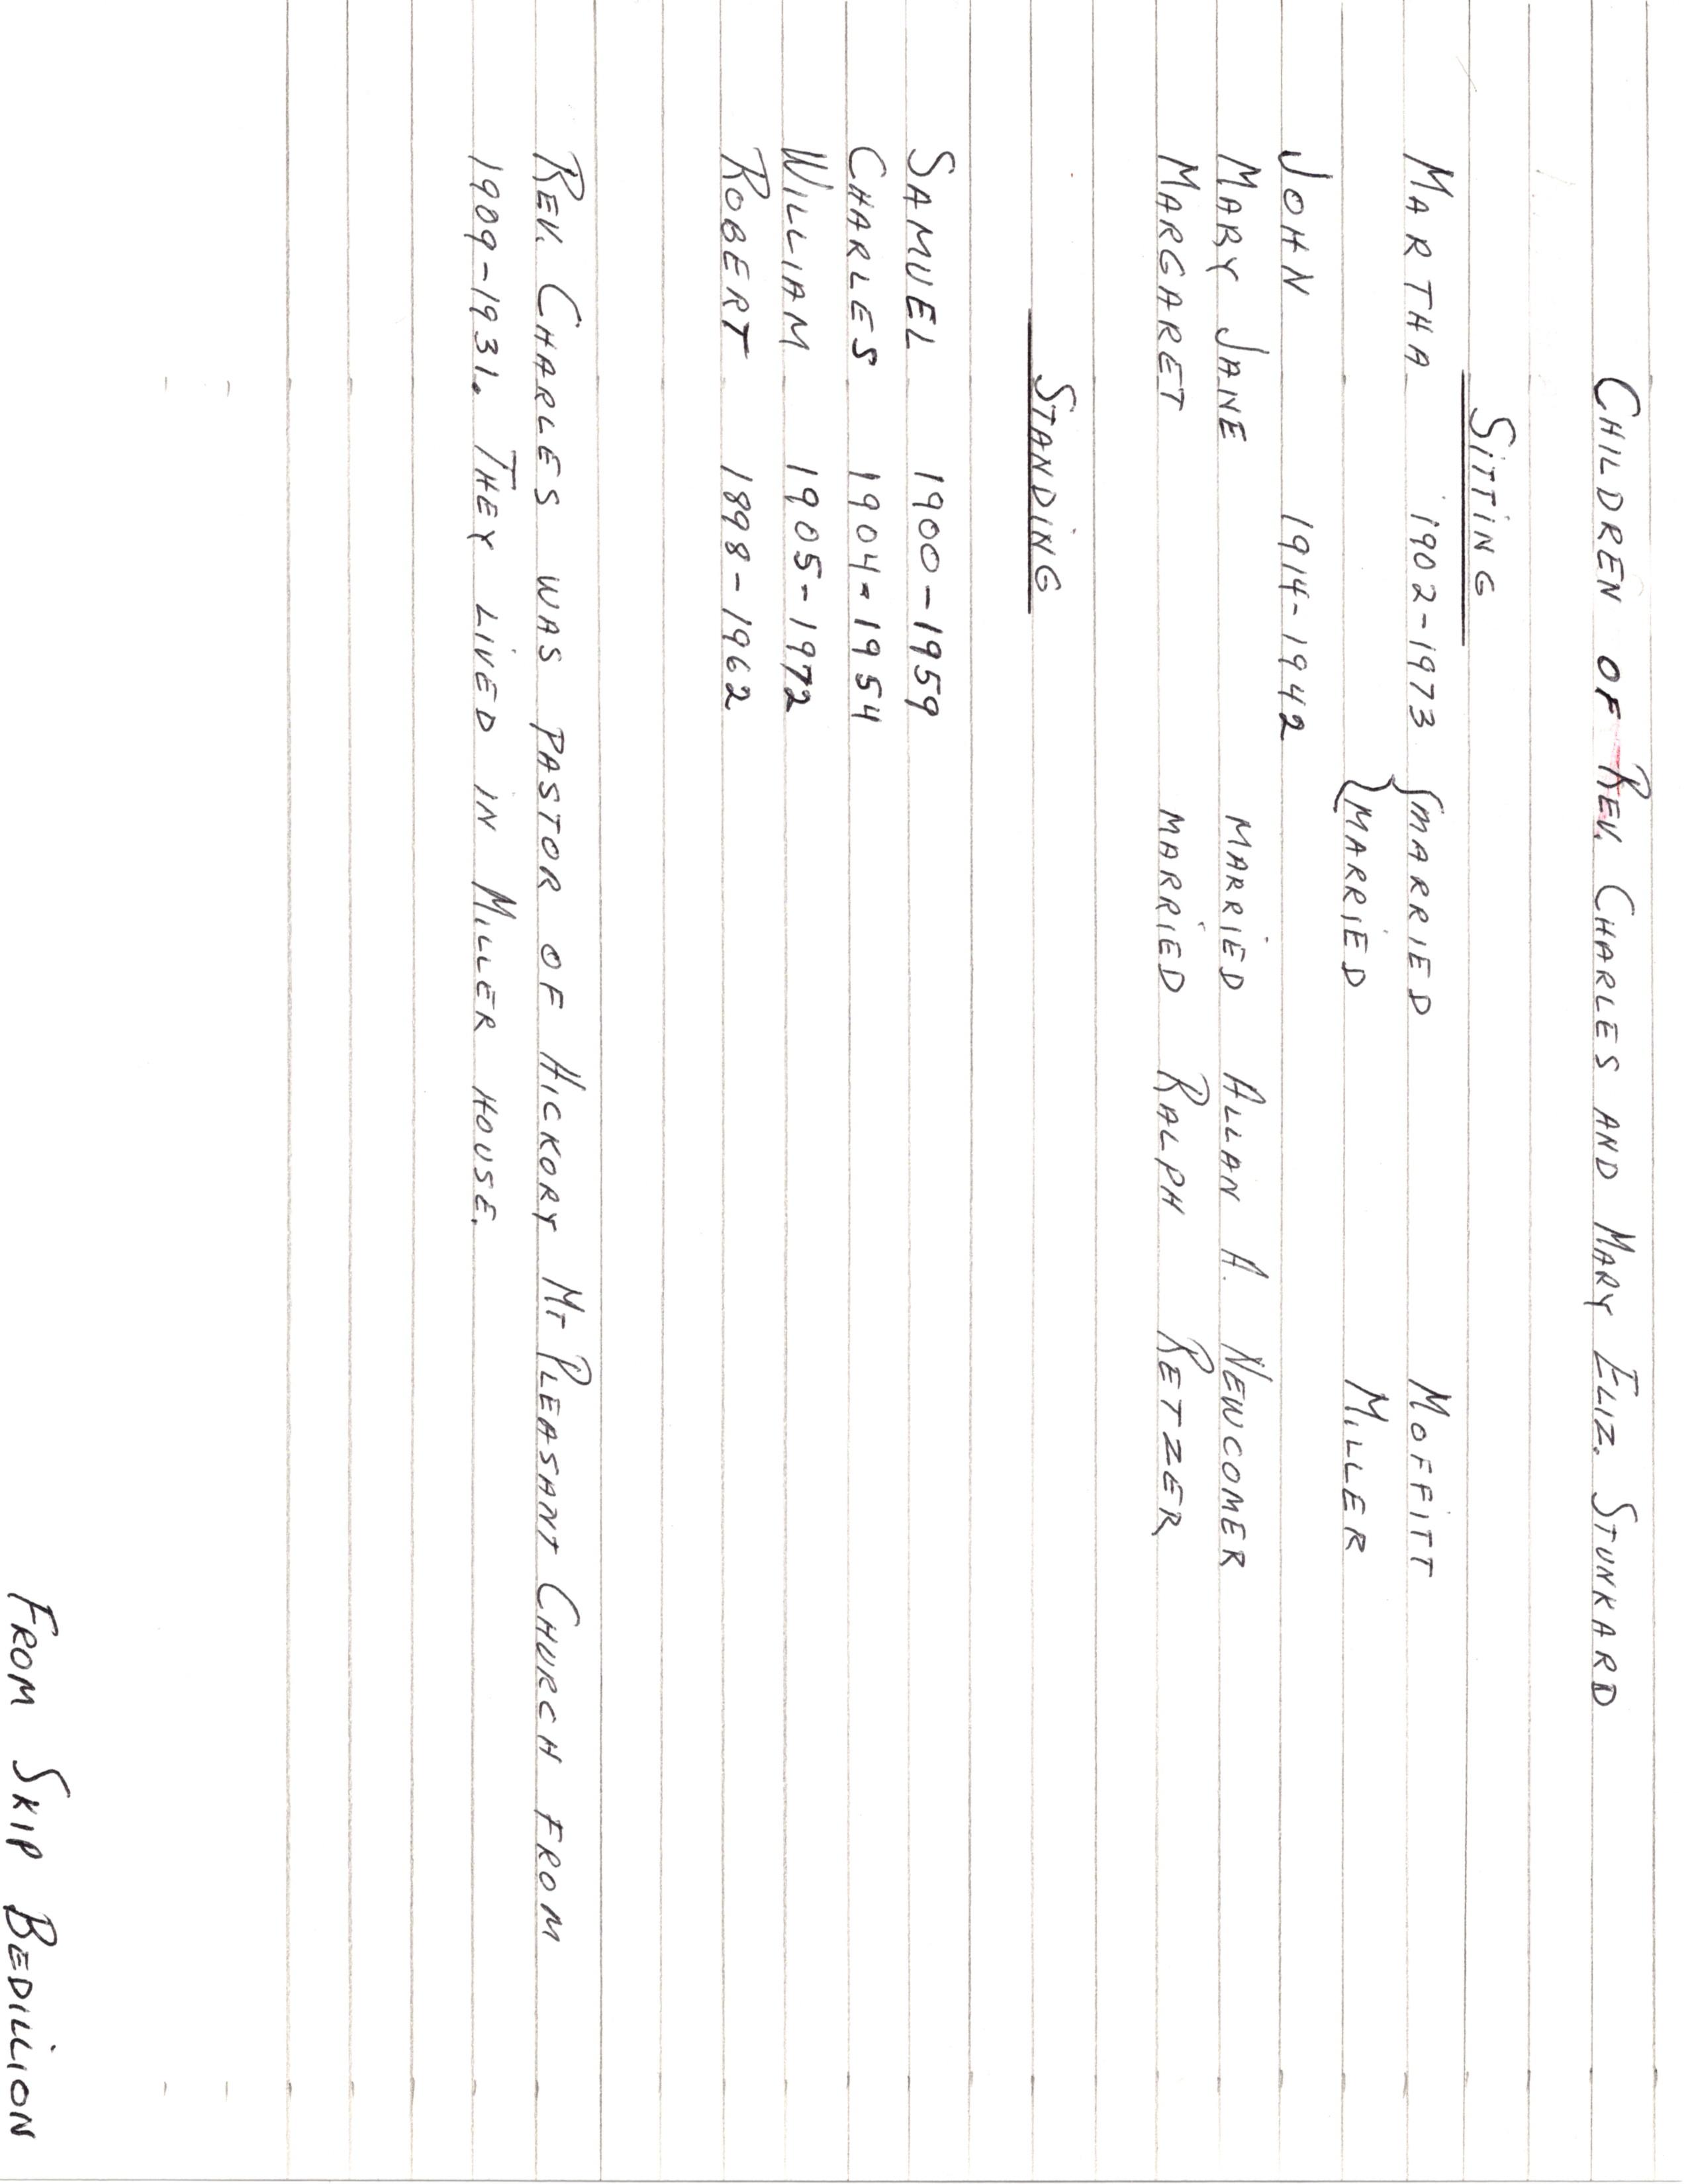 CHILDREN OF REV. CHARLES AND MARY ELIZ. STUNKARD
SITTING
MARTHA 1902-1973 {MARRIED MOFFITT
}MARRIED MILLER
JOHN 1914-1942
MARY JANE MARRIED ALLAN A. NEWCOMER
MARGARET MARRIED RALPH RETZER
STANDING
SAMUEL 1900-1959
CHARLES 1904-1954
WILLIAM 1905-1972
ROBERT 1898-1962
REV. CHARLES WAS PASTOR OF HICKORY MT PLEASANT CHURCH FROM
1909-1931. THEY LIVED IN MILLER HOUSE.
FROM SKIP BEDILLION